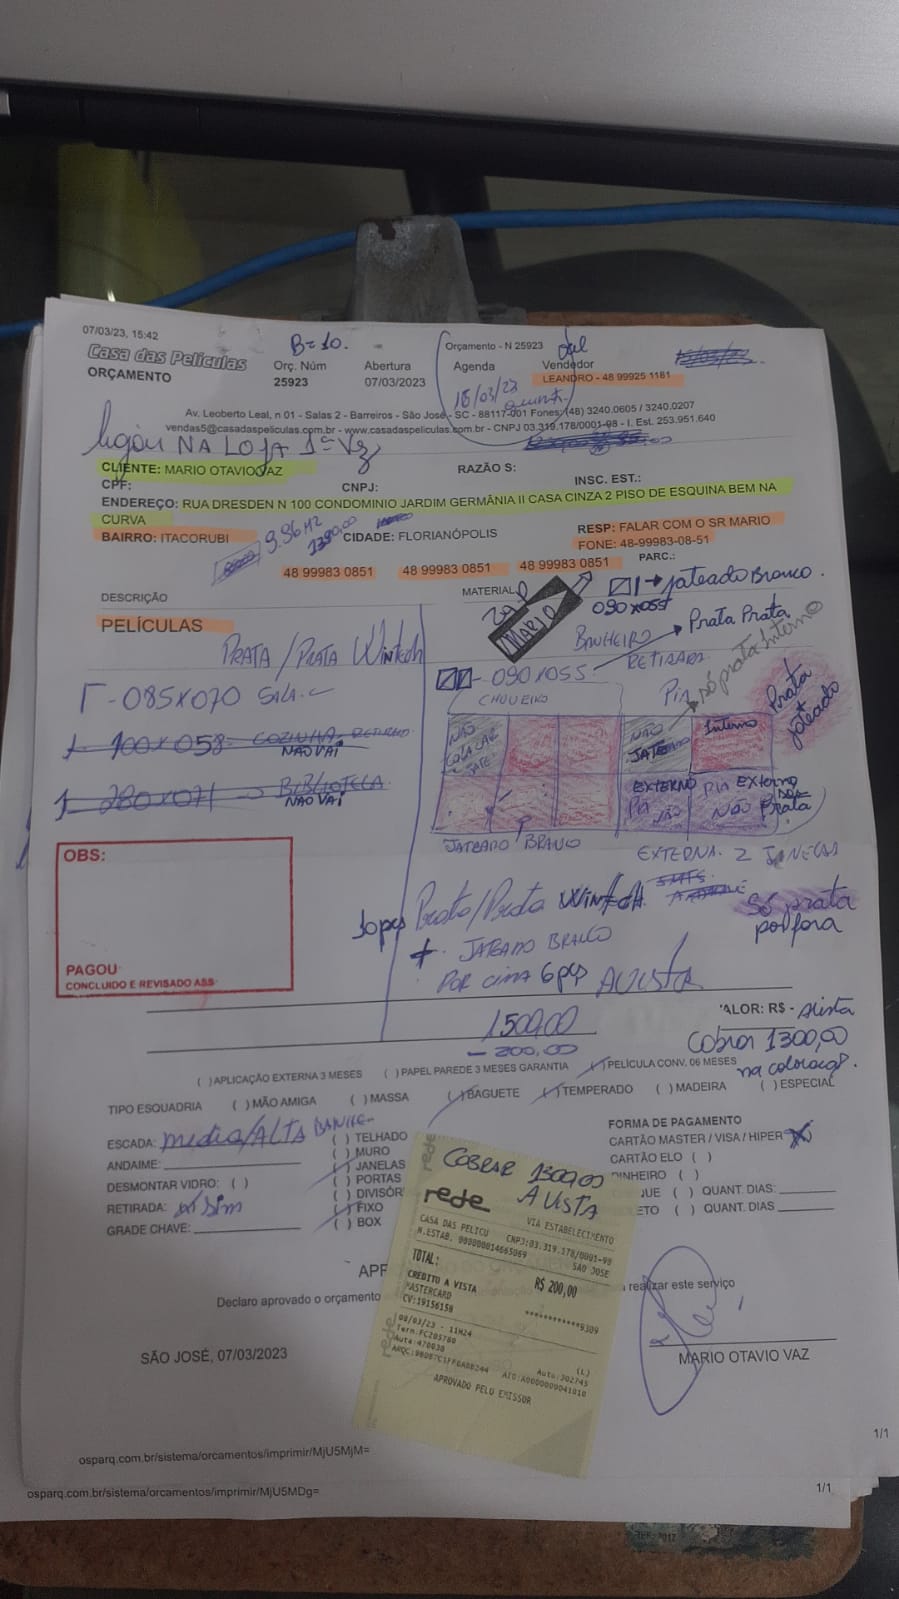 07/03/23, 15:42
Orçamento - N 25923
Casa das Películas
ORÇAMENTO
B=10.
Orç. Núm
25923
Abertura
07/03/2023
Agenda
16/03/23
quinta
Vendedor
LEANDRO - 48 99925 1181
Av. Leoberto Leal, n 01 - Salas 2 - Barreiros - São José - SC - 88117-001 Fones: (48) 3240.0605 / 3240.0207
vendas5@casadaspeliculas.com.br - www.casadaspeliculas.com.br - CNPJ 03.319.178/0001-98 - I. Est. 253.951.640
ligou NA LOJA 1ª Vz
CLIENTE: MARIO OTAVIO VAZ
RAZÃO S:
CPF:
CNPJ:
INSC. EST.:
ENDEREÇO: RUA DRESDEN N 100 CONDOMINIO JARDIM GERMÂNIA II CASA CINZA 2 PISO DE ESQUINA BEM NA
CURVA
BAIRRO: ITACORUBI
9.96 M2
1390,00
CIDADE: FLORIANÓPOLIS
RESP: FALAR COM O SR MARIO
FONE: 48-99983-08-51
48 99983 0851
48 99983 0851
48 99983 0851
PARC.:
DESCRIÇÃO
MATERIAL
ZAP
MARIO
1 → jateado Branco.
090x055
PELÍCULAS
PRATA / PRATA Wintech
BANHEIRO
RETIRADA
Prata Prata
090x055
CHUVEIRO
PIA
só prata Interno
1 - 085x070 SALA
1 - 100x058 - COZINHA - RETIRADO
NÃO VAI
1 - 280x071 → BIBLIOTECA
NÃO VAI
NÃO
COLOCAR
JATE
NÃO
JATEADO
Interno
Prata
jateado
EXTERNO
PIA
NÃO
PIA EXterno
NÃO
só
Prata
JATEADO BRANCO
EXTERNA. 2 JANELAS
OBS:
PAGOU
CONCLUIDO E REVISADO ASS
10 pçs Prata/Prata WINtecH.
Só prata
por fora
+ JATEADO BRANCO
POR CIMA 6 pçs AVISTA
1500,00
- 200,00
VALOR: R$ - Avista
Cobrar 1300,00
na colocação.
( ) APLICAÇÃO EXTERNA 3 MESES ( ) PAPEL PAREDE 3 MESES GARANTIA ( ) PELÍCULA CONV. 06 MESES
TIPO ESQUADRIA ( ) MÃO AMIGA ( ) MASSA ( ) BAGUETE ( ) TEMPERADO ( ) MADEIRA ( ) ESPECIAL
ESCADA: media/ALTA
ANDAIME:
DESMONTAR VIDRO: ( )
RETIRADA: Sim
GRADE CHAVE:
( ) TELHADO
( ) MURO
( ) JANELAS
( ) PORTAS
( ) DIVISÓR
( ) FIXO
( ) BOX
FORMA DE PAGAMENTO
CARTÃO MASTER / VISA / HIPER (X)
CARTÃO ELO ( )
DINHEIRO ( )
QUE ( ) QUANT. DIAS:
ETO ( ) QUANT. DIAS
COBRAR 1300,00
A VISTA
rede
VIA ESTABELECIMENTO
CASA DAS PELICU CNPJ:03.319.178/0001-98
N.ESTAB. 000000014665069 SAO JOSE
TOTAL: R$ 200,00
CREDITO A VISTA
MASTERCARD ************9309
CV:19156158
08/03/23 - 11H24
Auto:302745
AID:A0000000041010
APROVADO PELO EMISSOR
APR
Declaro aprovado o orçamento
a realizar este serviço
SÃO JOSÉ, 07/03/2023
MARIO OTAVIO VAZ
1/1
osparq.com.br/sistema/orcamentos/imprimir/MjU5MjM=
osparq.com.br/sistema/orcamentos/imprimir/MjU5MDg=
1/1